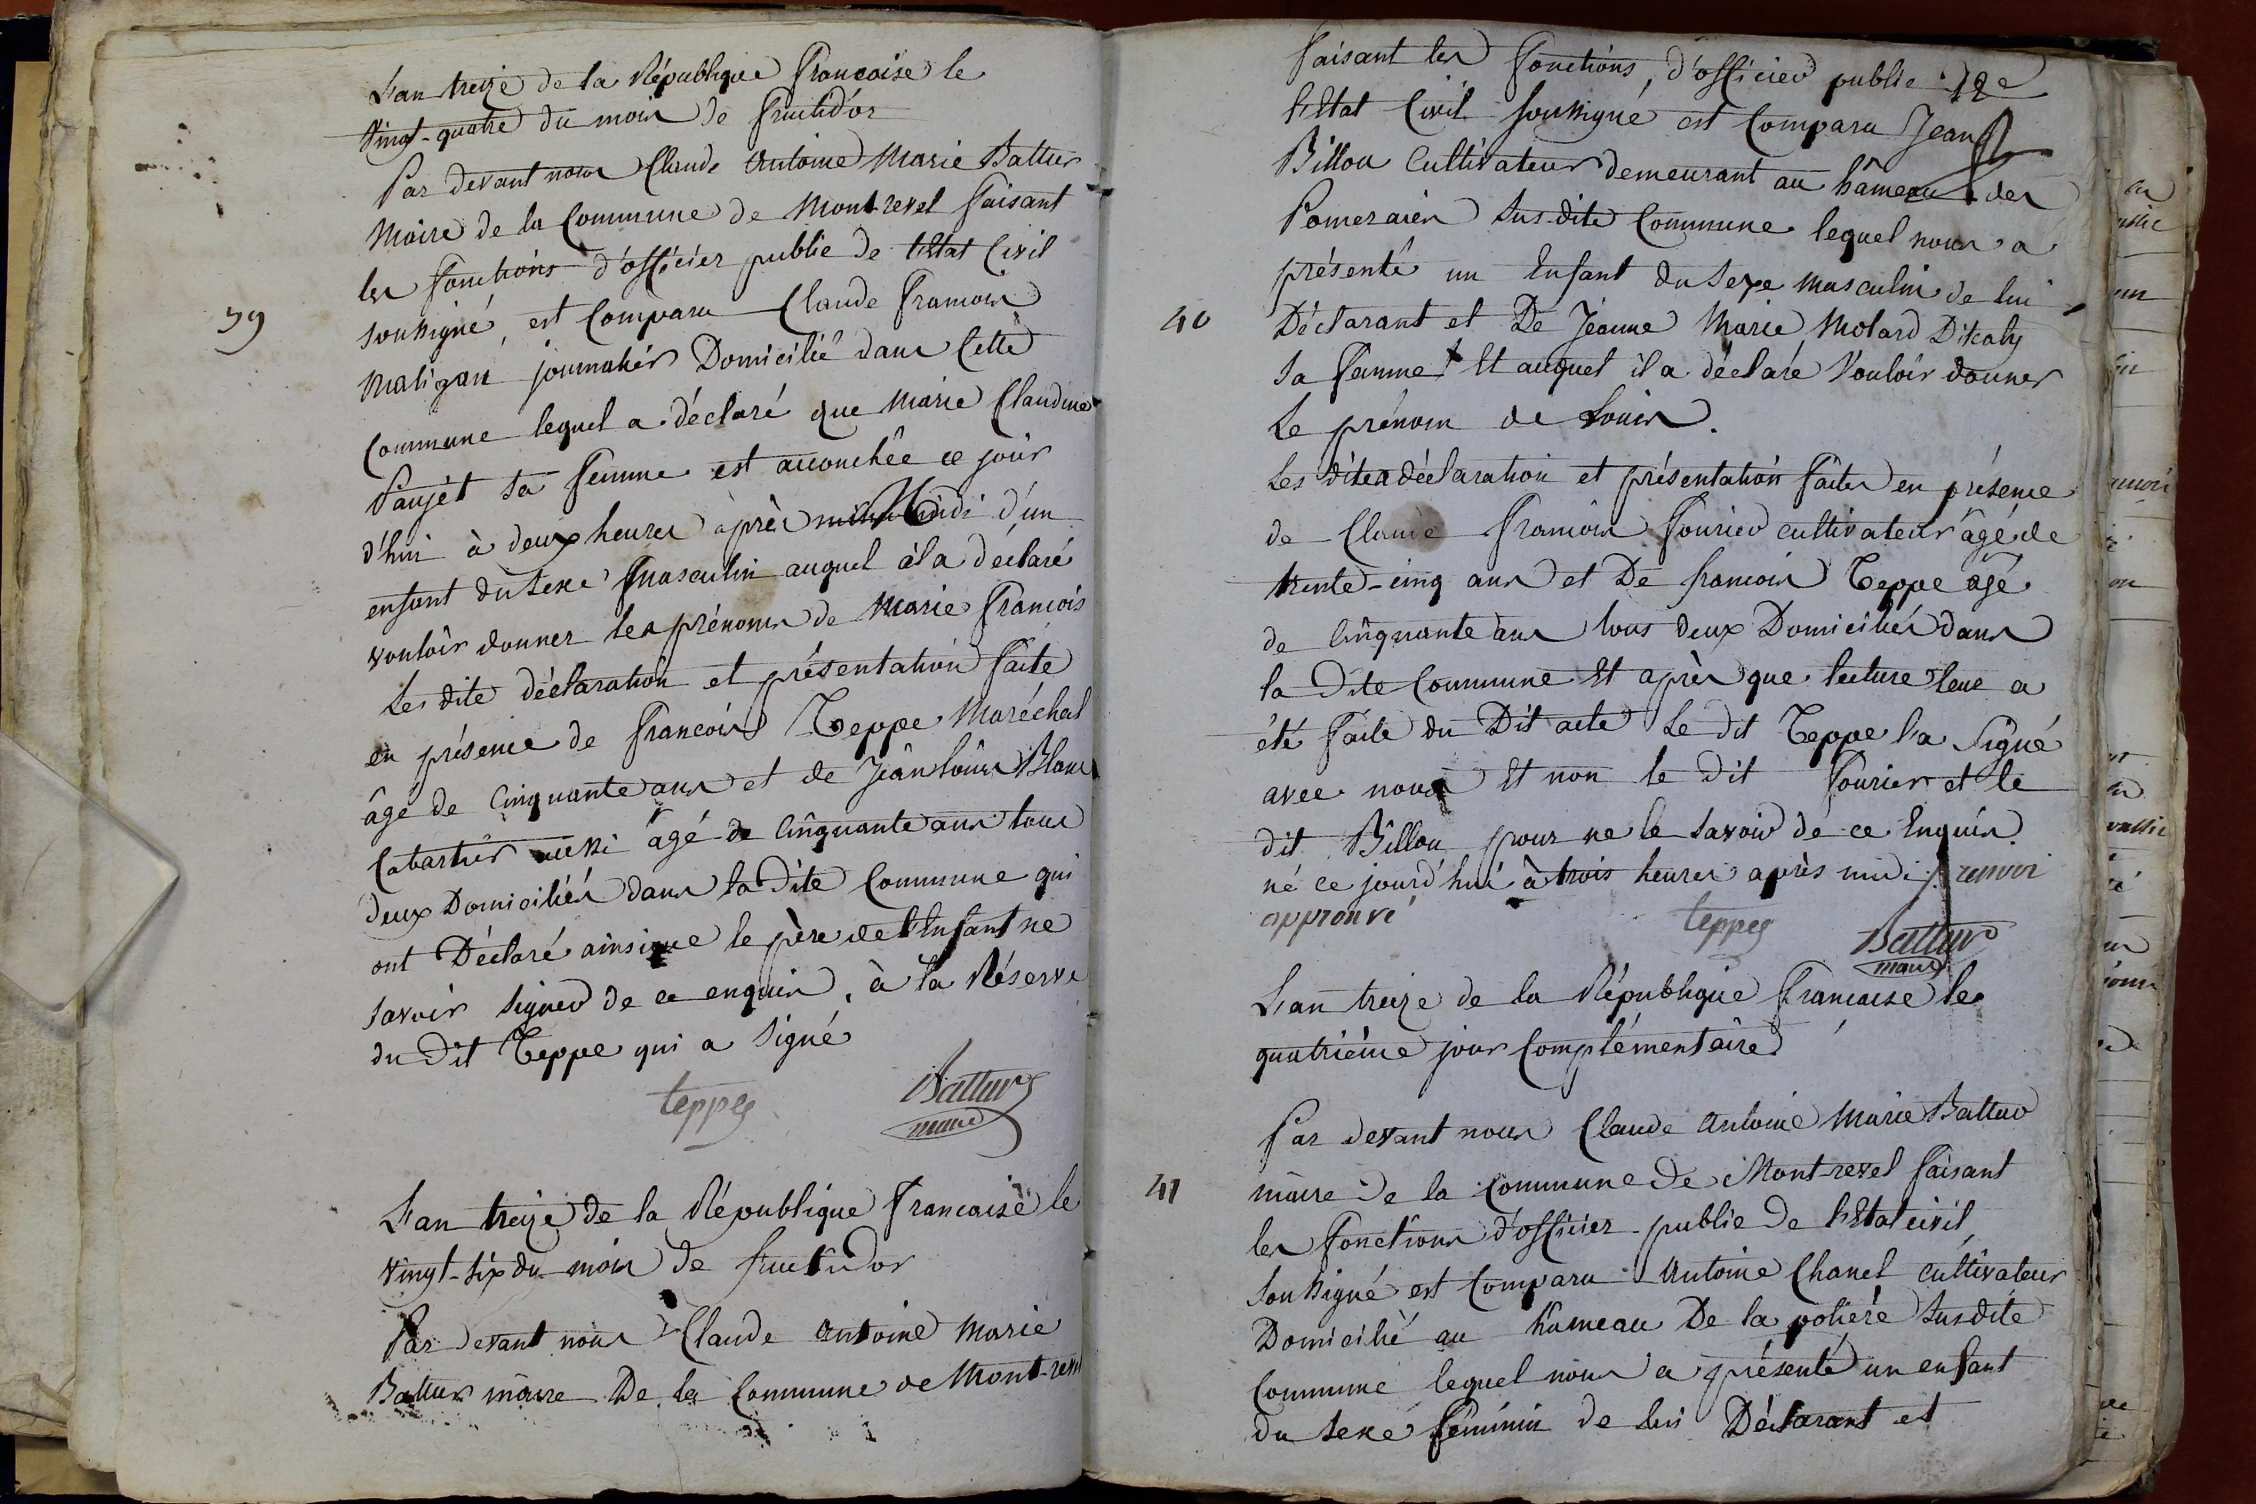 L'an treize de la République francaise le
vingt-quatre du mois de fructidor
Par devant nous Claude Antoine Marie Battur
Maire de la Commune de Mont-revel faisant
les fonctions d'officier public de l'Etat Civil
soussigné, est comparu Claude francois
39
Maligan journalier Domicilié dans Cette
Commune lequel a déclaré que Marie Claudine
Paujet sa femme est accouchée ce jour
d'hui à deux heures après Midi d'un
enfant du sexe masculin auquel il a déclaré
vouloir donner les prénoms de Marie François
Les dite déclaration et présentation faite
en présence de francois Teppe Maréchal
âgé de Cinquante ans et de Jean louis Blanc
Cabartier aussi âgé de Cinquante ans tous
deux Domiciliés dans la dite Commune qui
ont Déclaré ainsi que le père de l'Enfant ne
savoir signer de ce enquis, à la Réserve
du Dit Teppe qui a signé
teppe
Battur
maire
L'an treize de la République francaise le
vingt-six du mois de fructidor
Par devant nous Claude Antoine Marie
Battur maire De la Commune de Mont-revel
faisant les fonctions, d'officier public De
l'Etat Civil soussigné est Comparu Jean
Billou Cultivateur demeurant au hâmeau des
Pomeraies sus-dite Commune lequel nous a
présenté un Enfant du sexe masculin de lui
40
Déclarant et De Jeanne Marie Molard
sa femme Et auquel il a déclaré Vouloir donner
le prénom de Louis.
Les dites déclaration et présentation faites en présence
de Claude francois fourier cultivateur âgé de
trente-cinq ans et De francois Teppe âgé
de Cinquante ans tous deux Domiciliés dans
la Dite Commune Et après que lecture leue a
été faite du Dit acte Le dit Teppe l'a signé
avec nous Et non le dit fourier et le
dit Billou pour ne le savoir de ce Enquis
né ce jourd'hui à trois heures après midi renvoi
approuvé
teppe
Battur
maire
L'an treize de la République francaise le
quatrième jour Complémentaire
Par devant nous Claude Antoine Marie Battur
41
maire De la Commune De Mont-revel faisant
les fonctions d'officier public De l'Etat civil,
soussigné est Comparu Antoine Chanel cultivateur
Domicilié au hameau De la poliere susdite
Commune lequel nous a présenté un enfant
du sexe féminin de lui Déclarant et